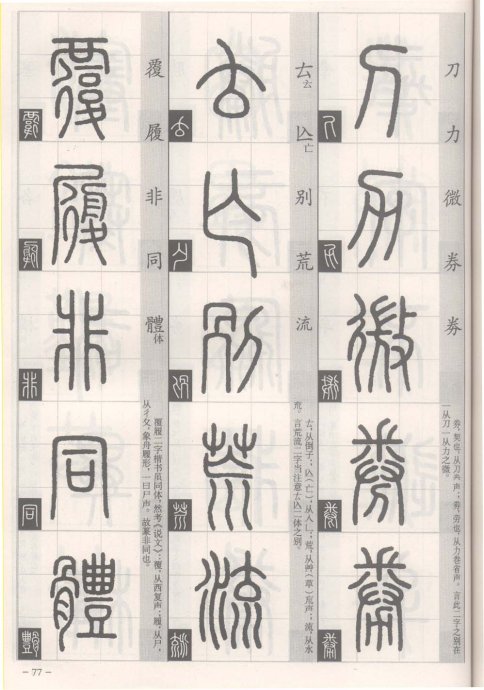 刀 力 微 券 劵
券,契也,从刀𢍏声;劵,劳也,从力卷省声。言此二字之别在
一从刀一从力之微。
𠫓 亾亡 别 荒 流
𠫓,从倒子;亾(亡),从入乚;荒,从艸(草)㠩声;流,从水
㐬。言荒流二字当注意𠫓亾二体之别。
覆 履 非 同 體体
覆履二字楷书虽同体,然考《说文》:覆,从西复声;履,从尸,
从彳夂,象舟履形,一曰尸声。故篆非同也。
- 77 -